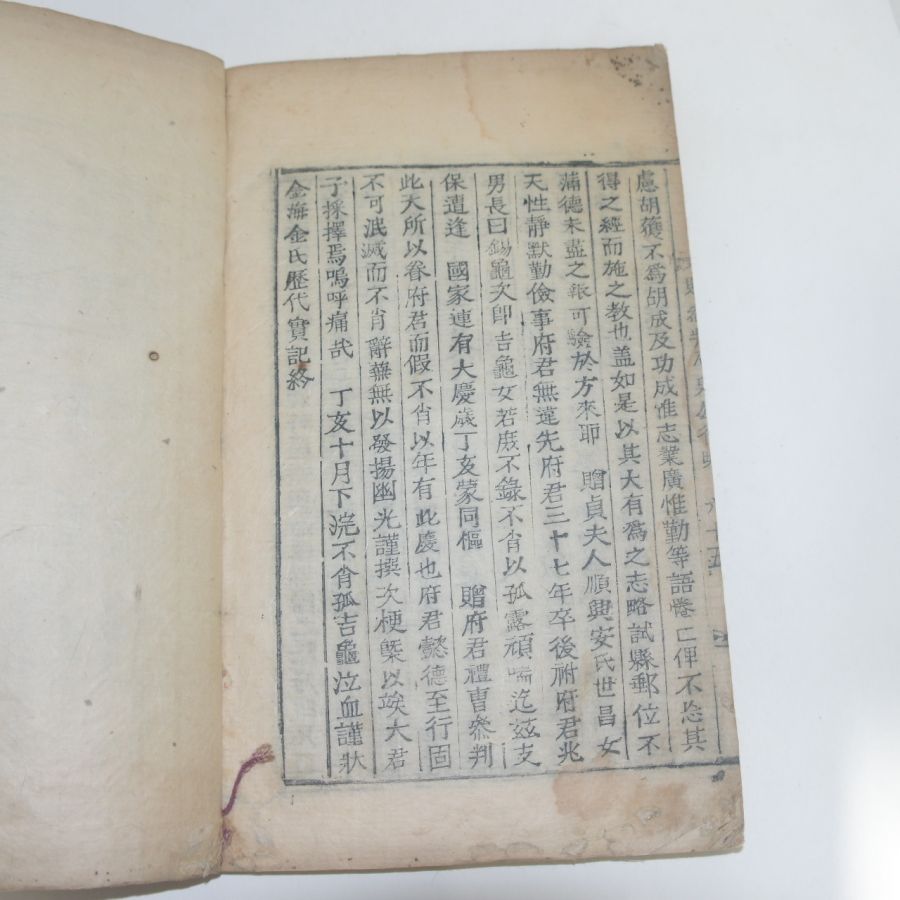 慮胡獲不爲胡成及功成惟志業廣惟勤等語惓〻俾不忘其
得之經而施之教也盖如是以其大有爲之志略試縣郵位不
滿德未盡之報可驗於方來耶 贈貞夫人順興安氏世昌女
天性靜默勤儉事府君無違先府君三十七年卒後祔府君兆
男長曰錫龜次卽吉龜女若庶不錄不肖以孤露頑喘迄玆支
保遭逢 國家連有大慶歲丁亥蒙同樞 贈府君禮曹參判
此天所以眷府君而假不肖以年有此慶也府君懿德至行固
不可泯滅而不肖辭蕪無以發揚幽光謹撰次梗槩以竢大君
子採擇焉嗚呼痛哉 丁亥十月下浣不肖孤吉龜泣血謹狀
金海金氏歷代實記終